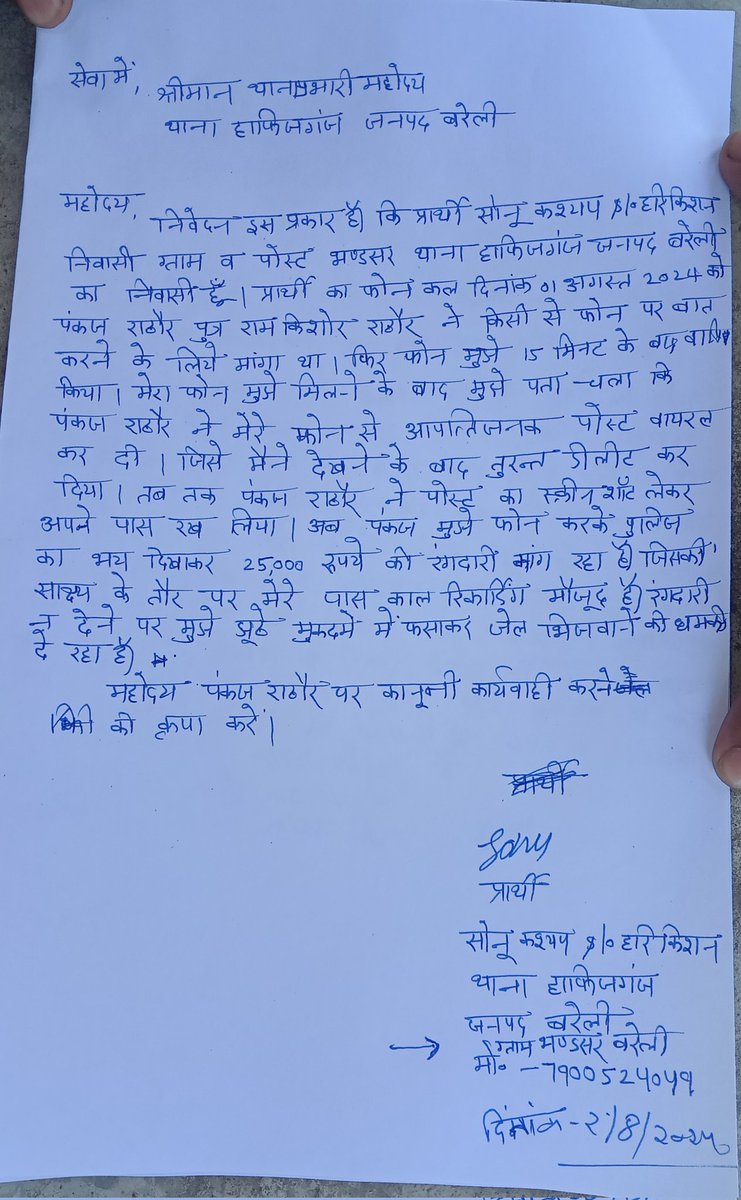 सेवा में,
श्रीमान थानाप्रभारी महोदय
थाना हाफिजगंज जनपद बरेली
महोदय,
निवेदन इस प्रकार है। कि प्रार्थी सोनू कश्यप S/o हरिकिशन
निवासी ग्राम व पोस्ट भण्डसर थाना हाफिजगंज जनपद बरेली
का निवासी हूँ। प्रार्थी का फोन कल दिनांक 01 अगस्त 2024 को
पंकज राठौर पुत्र राम किशोर राठौर ने किसी से फोन पर बात
करने के लिये मांगा था। फिर फोन मुझे 15 मिनट के बाद वापिस
किया। मेरा फोन मुझे मिलने के बाद मुझे पता चला कि
पंकज राठौर ने मेरे फोन से आपत्तिजनक पोस्ट वायरल
कर दी। जिसे मैने देखने के बाद तुरन्त डीलीट कर
दिया। तब तक पंकज राठौर ने पोस्ट का स्क्रीन शॉट लेकर
अपने पास रख लिया। अब पंकज मुझे फोन करके पुलिज
का भय दिखाकर 25,000 रूपये की रंगदारी मांग रहा है। जिसकी
साक्ष्य के तौर पर मेरे पास काल रिकार्डिंग मौजूद है। रंगदारी
न देने पर मुझे झूठे मुकदमे में फसाकर जेल भिजवाने की धमकी
दे रहा है।
महोदय पंकज राठौर पर कानूनी कार्यवाही करने
की कृपा करें।
प्रार्थी
सोनू कश्यप S/o हरिकिशन
थाना हाफिजगंज
जनपद बरेली
ग्राम भण्डसर बरेली
मो० - 7900524049
दिनांक - २/8/२०२४